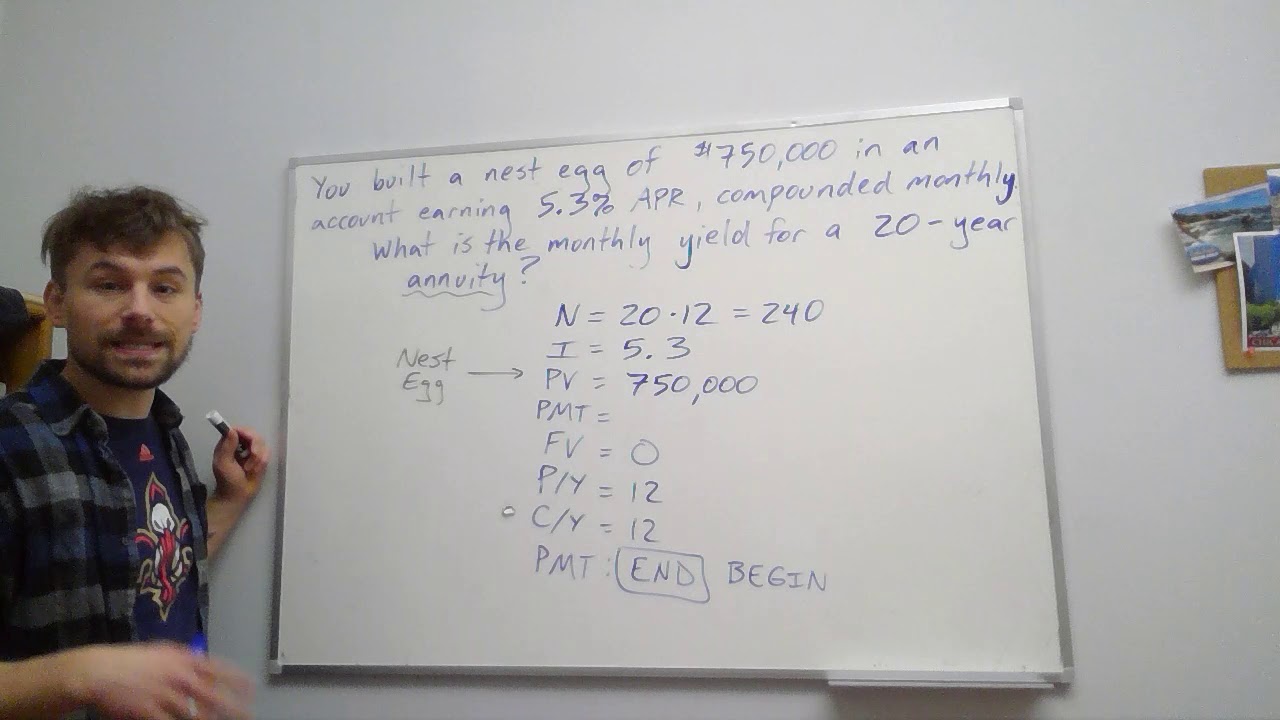 You built a nest egg of $750,000 in an
account earning 5.3% APR, compounded monthly.
What is the monthly yield for a 20-year
annuity?
N = 20·12 = 240
I = 5.3
Nest
Egg → PV = 750,000
PMT =
FV = 0
P/Y = 12
C/Y = 12
PMT: END BEGIN